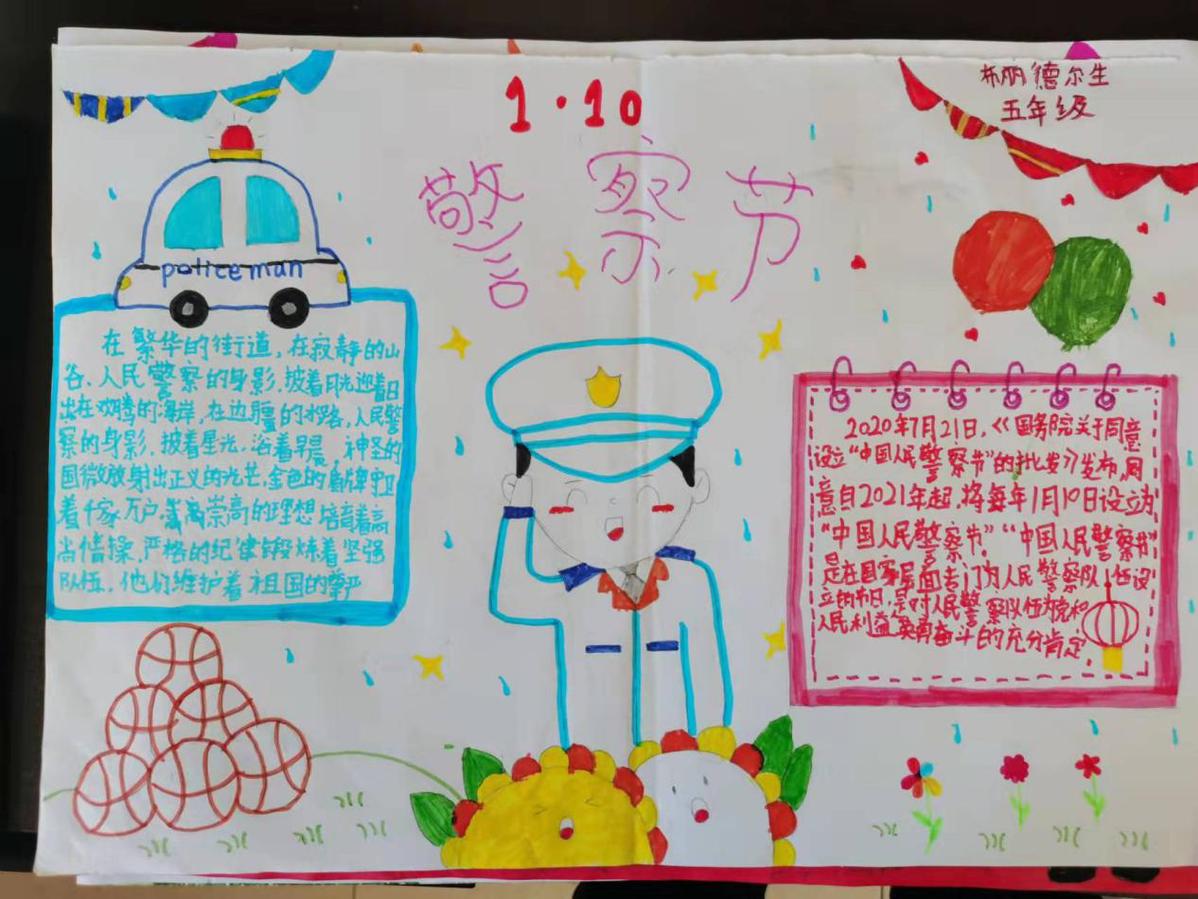 1·10
警察节
布丽德尔生
五年级
policeman
在繁华的街道,在寂静的山
谷、人民警察的身影,披着月光迎着日
出在欢腾的海岸,在边疆的水路,人民警
察的身影,披着星光,浴着早晨,神圣的
国徽放射出正义的光芒,金色的盾牌守卫
着千家万户,崇高的理想培育着高
尚情操,严格的纪律锻炼着坚强
队伍,他们维护着祖国的尊严
2020年7月21日,《国务院关于同意
设立“中国人民警察节”的批复》发布,同
意自2021年起,将每年1月10日设立为
“中国人民警察节”“中国人民警察节”
是在国家层面专门为人民警察队伍设
立的节日,是对人民警察队伍为党和
人民利益英勇奋斗的充分肯定,